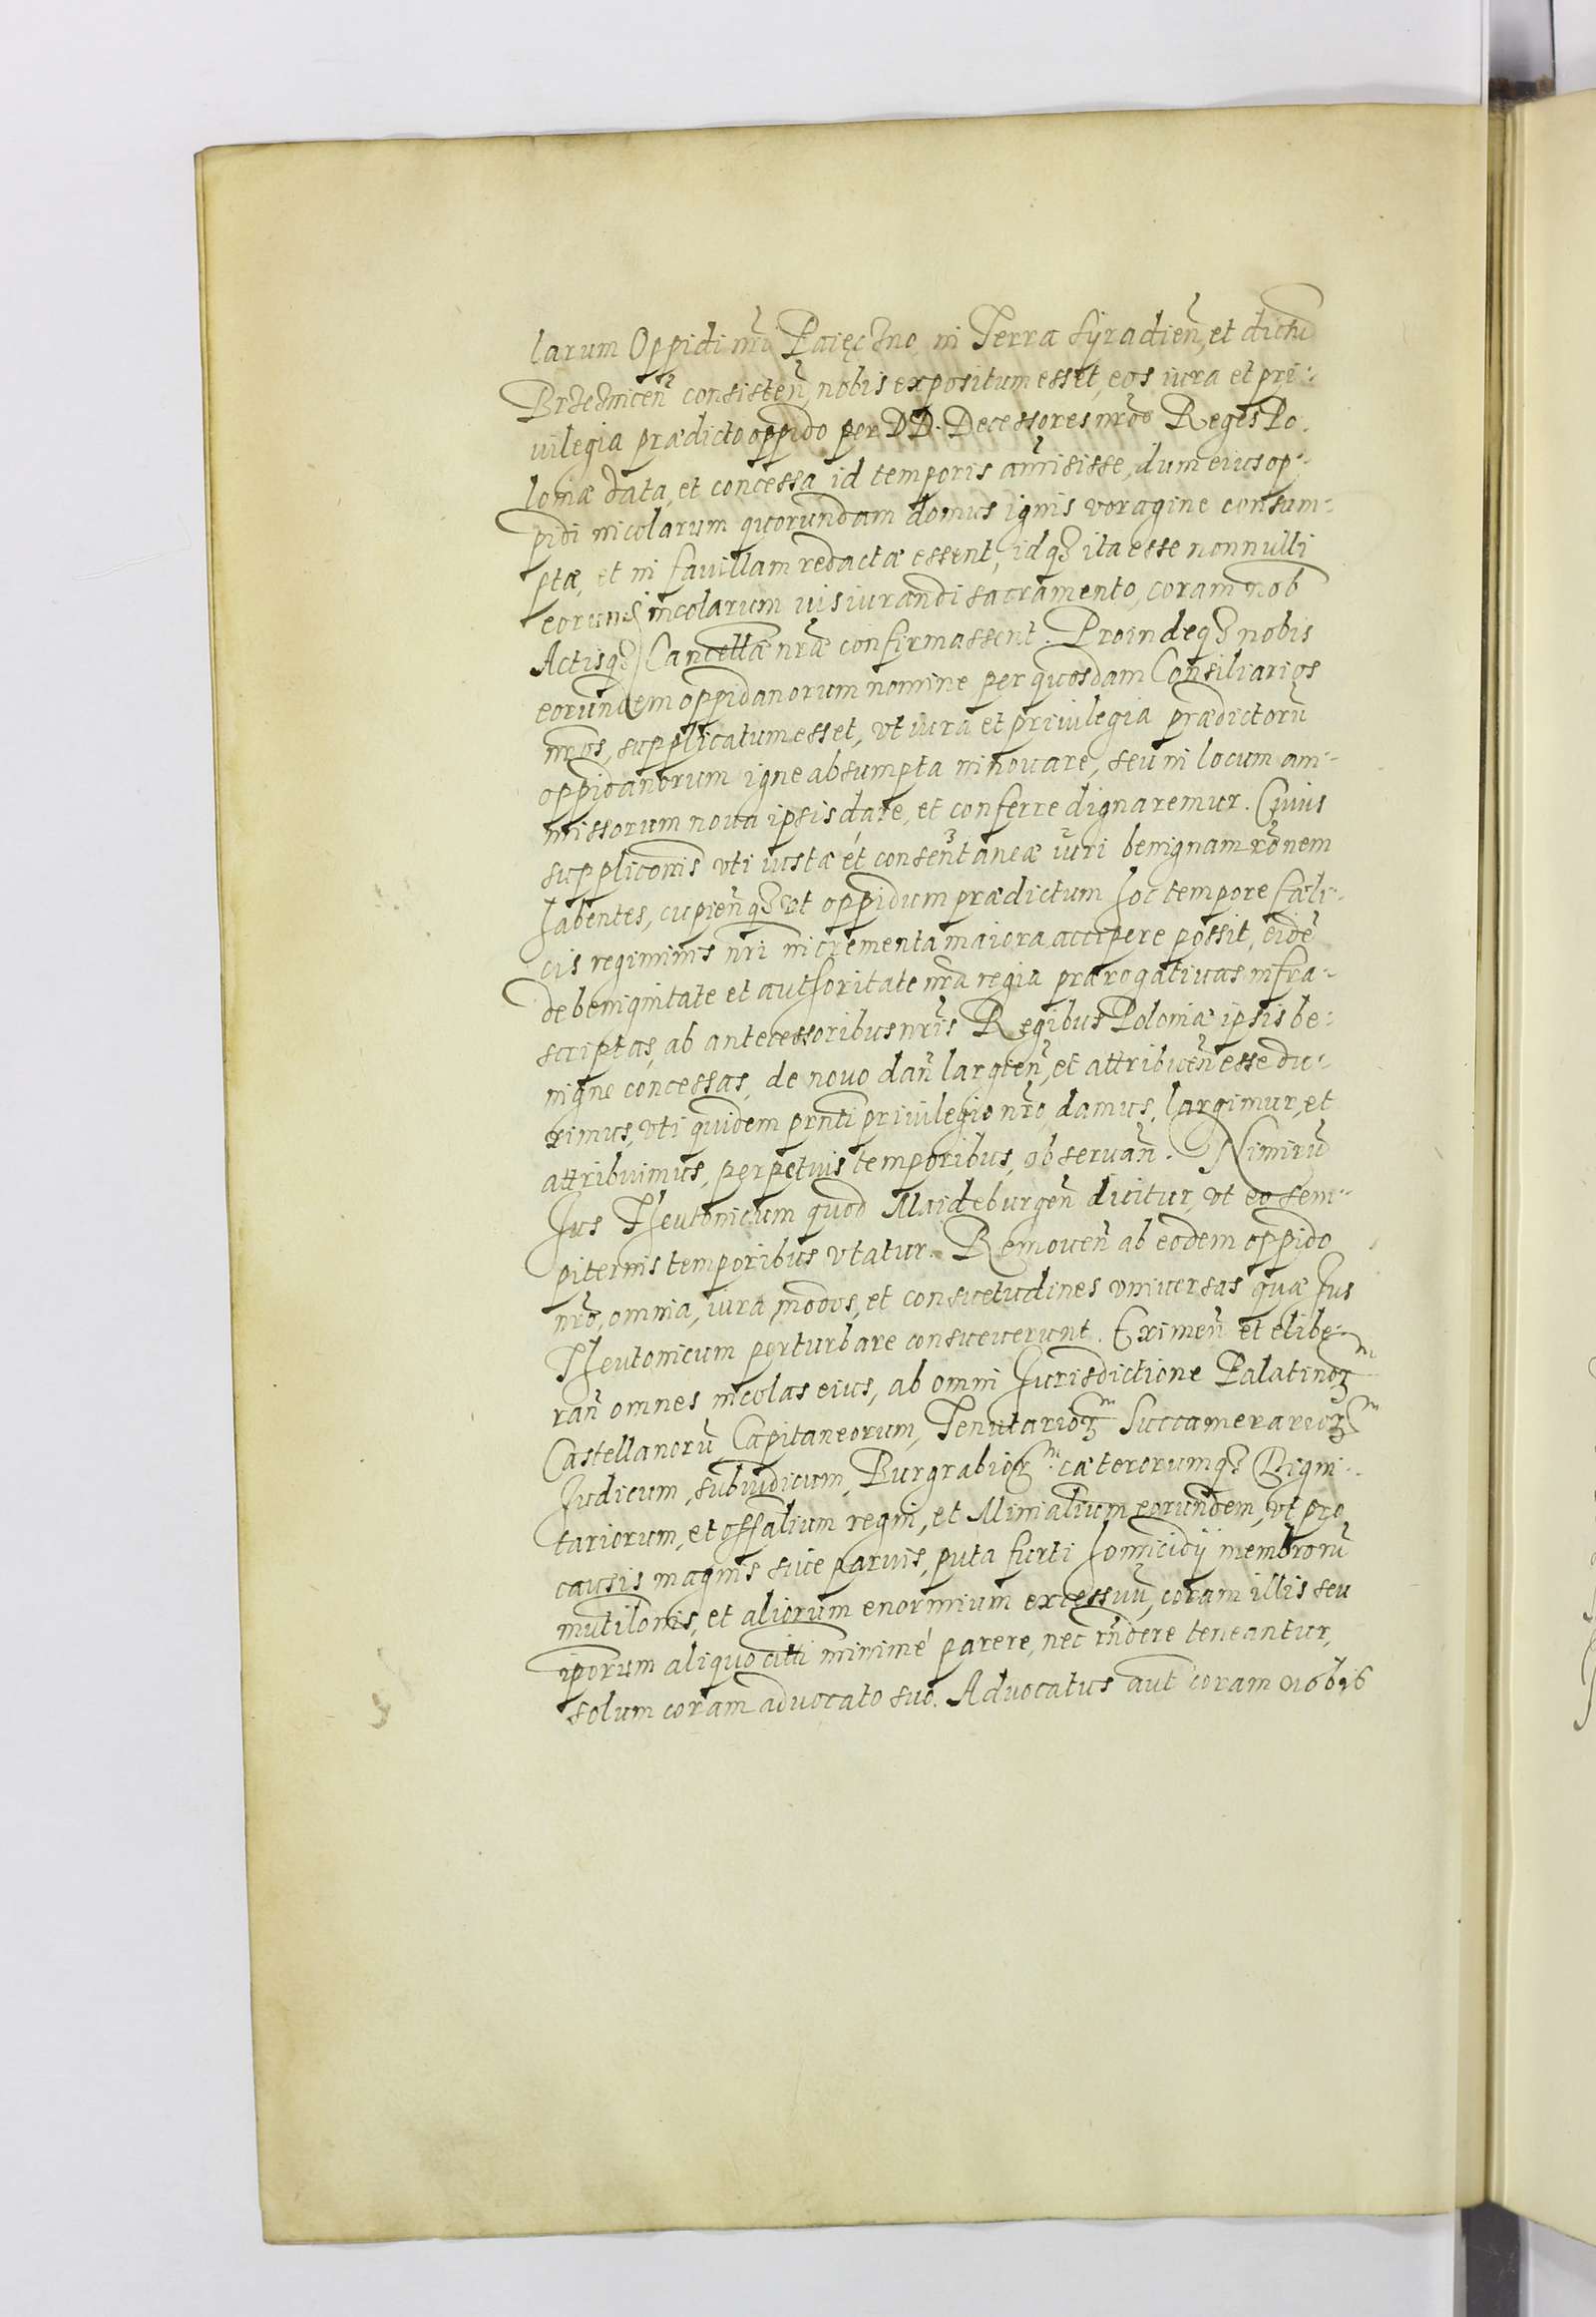 larum Oppidi nr̃i Pajęczno in Terra Syradien̄, et dictu
Brzeźnicen̄ consisten̄, nobis expositum esset, eos iura et pri-
uilegia prædicto oppido per DD. Decessores nr̃os Reges Po-
loniæ data, et concessa id temporis amisisse, dum eius op-
pidi incolarum quorundam domus ignis voragine consum-
ptæ, et in fauillam redactæ essent, idq3 ita esse nonnulli
eorum incolarum iusiurandi sacramento, coram nob
Actisq3 Cancellæ nr̃æ confirmassent. Proindeq3 nobis
eorundem oppidanorum nomine per quosdam Consiliarios
nr̃os, supplicatum esset, vt iura et priuilegia prædictorū
oppidanorum igne absumpta innouare, seu in locum am-
missorum noua ipsis dare, et conferre dignaremur. Cuius
supplicōnis vti iustæ et consentaneæ iuri benignam rōnem
habentes, cupien̄q3 vt oppidum prædictum hoc tempore fæli-
cis regiminis nr̃i incrementa maiora accipere possit, eidē
de benignitate et authoritate nr̃a regia prærogatiuas infra-
scriptas, ab antecessoribus nr̃is Regibus Poloniæ ipsis be-
nigne concessas, de nouo dan̄ largien̄, et attribuen̄ esse du-
ximus, vti quidem prn̄ti priuilegio nr̃o, damus, largimur, et
attribuimus, perpetuis temporibus, obseruan̄. Nimirū
Jus Theutonicum quod Maideburgen̄ dicitur, vt eo sem-
piternis temporibus vtatur. Remouen̄ ab eodem oppido
nr̃o, omnia, iura, modos, et consuetudines vniuersas quæ Jus
Theutonicum perturbare consueuerunt. Eximen̄ et elibe-
ran̄ omnes incolas eius, ab omni Jurisdictione Palatinoꝝ
Castellanorū Capitaneorum, Tenutarioꝝ Succamerarioꝝ
Judicum, subiudicum, Burgrabioꝝ cæterorumq3 Digni-
tariorum, et offālium regni, et Minialium eorundem, vt pro
causis magnis siue paruis, puta furti homicidij membrorū
mutilōnis, et aliorum enormium excessuū, coram illis seu
ipsorum aliquo citti minimè parere, nec rn̄dere teneantur,
solum coram aduocato suo. Aduocatus aut̄ coram nobis